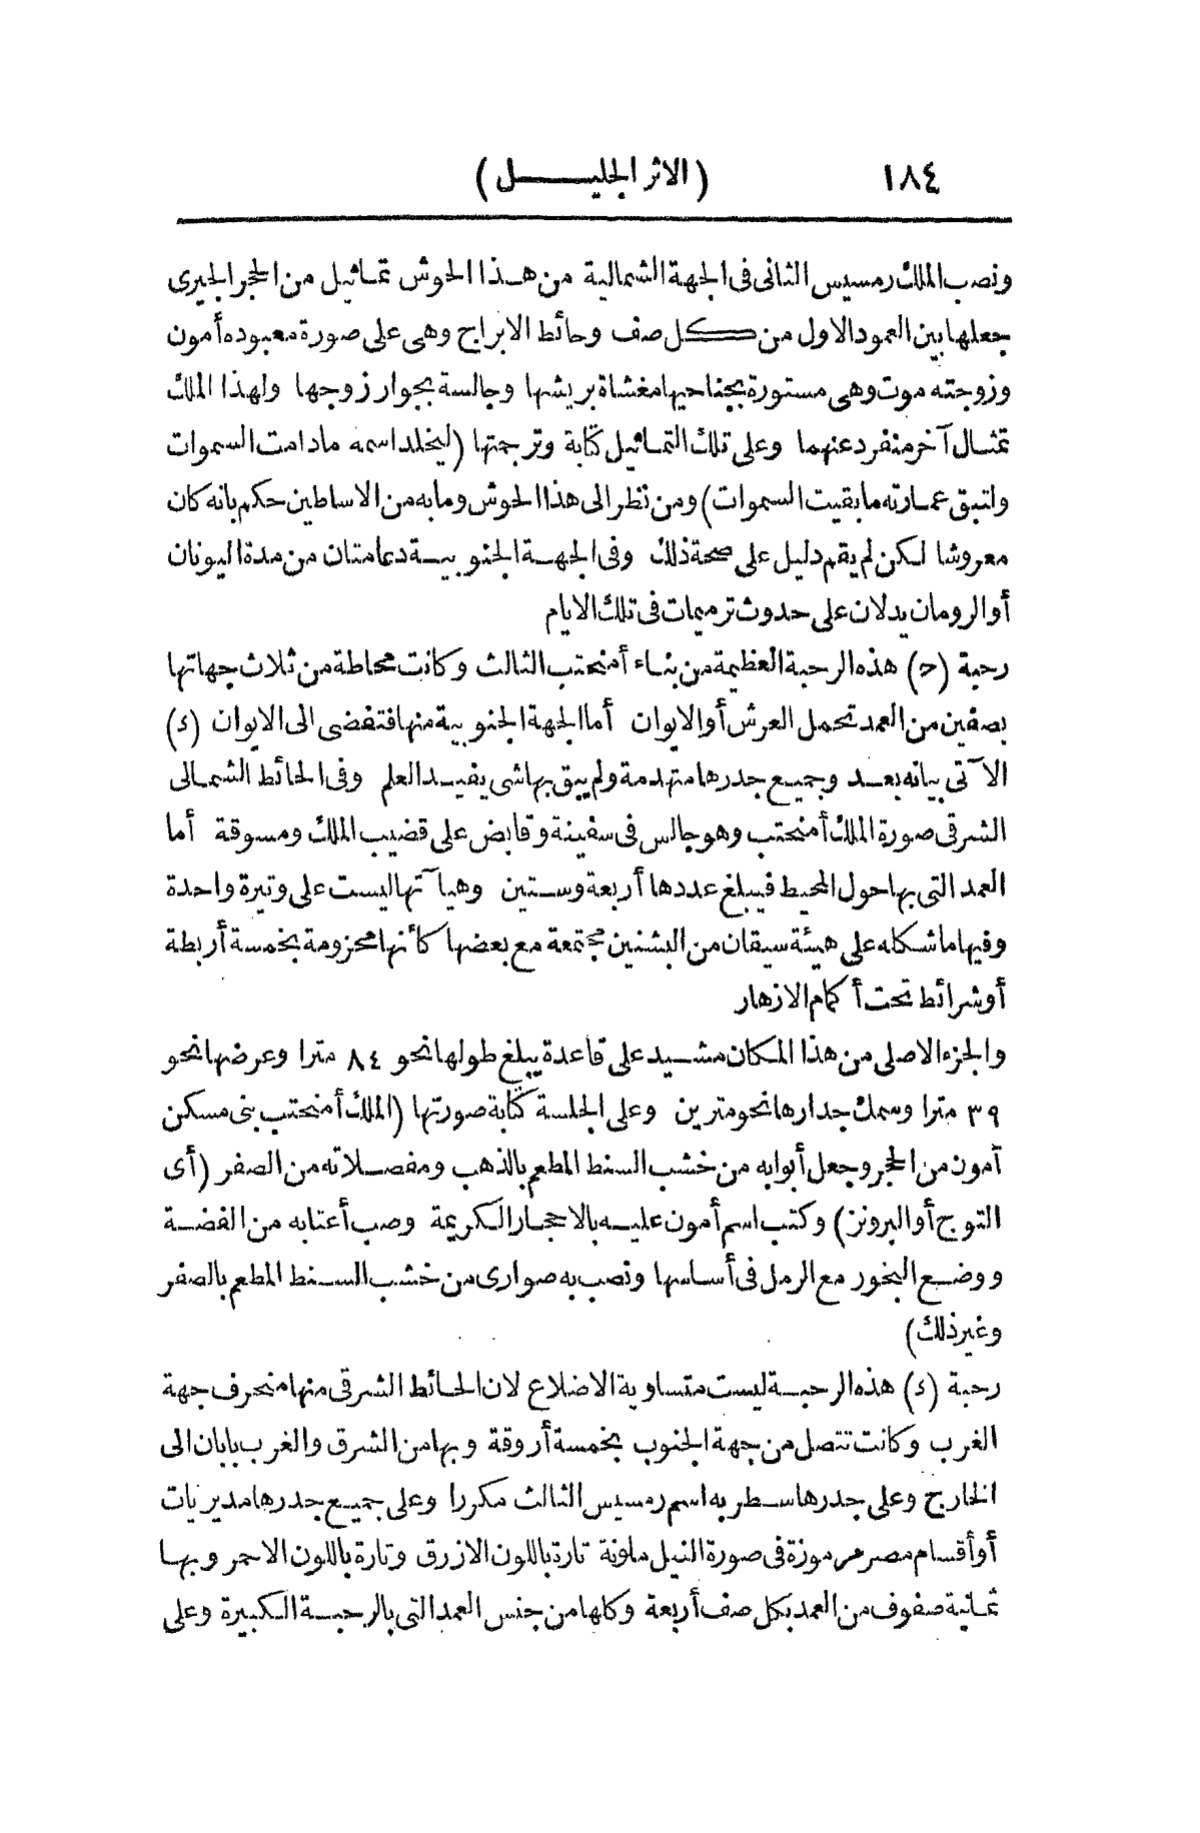 ١٨٤ (الاثر الجليل)
ونصب الملك رمسيس الثانى فى الجهة الشمالية من هذا الحوش تماثيل من الحجر الجيرى
جعلها بين العمود الاول من كل صف وحائط الابراج وهى على صورة معبوده أمون
وزوجته موت وهى مستورة بجناحيها مغشاة بريشها وجالسة بجوار زوجها ولهذا الملك
تمثال آخر منفرد عنهما وعلى تلك التماثيل كتابة وترجمتها (ليخلد اسمه مادامت السموات
ولتبق عمارته مابقيت السموات) ومن نظر الى هذا الحوش ومابه من الاساطين حكم بانه كان
معروشا لكن لم يقم دليل على صحة ذلك وفى الجهة الجنوبية دعامتان من مدة اليونان
أو الرومان يدلان على حدوث ترميمات فى تلك الايام
رحبة (ح) هذه الرحبة العظيمة من بناء أمنحتب الثالث وكانت محاطة من ثلاث جهاتها
بصفين من العمد تحمل العرش أو الايوان أما الجهة الجنوبية منها فتفضى الى الايوان (ء)
الآتى بيانه بعد وجميع جدرها متهدمة ولم يبق بهاشى يفيد العلم وفى الحائط الشمالى
الشرقى صورة الملك أمنحتب وهو جالس فى سفينة وقابض على قضيب الملك ومسوقة أما
العمد التى بها حول المحيط فيبلغ عددها أربعة وستين وهيآتها ليست على وتيرة واحدة
وفيها ماشكله على هيئة سيقان من البشنين مجتمعة مع بعضها كأنها محزومة بخمسة أربطة
أو شرائط تحت أكمام الازهار
والجزء الاصلى من هذا المكان مشيد على قاعدة يبلغ طولها نحو ٨٤ مترا وعرضها نحو
٣٩ مترا وسمك جدارها نحو مترين وعلى الجلسة كتابة صورتها (الملك أمنحتب بنى مسكن
آمون من الحجر وجعل أبوابه من خشب السنط المطعم بالذهب ومفصلاته من الصفر (أى
التوج أو البرونز) وكتب اسم أمون عليه بالاحجار الكريمة وصب أعتابه من الفضة
ووضع البخور مع الرمل فى أساسها ونصب به صوارى من خشب السنط المطعم بالصفر
وغير ذلك)
رحبة (ء) هذه الرحبة ليست متساوية الاضلاع لان الحائط الشرقى منها منحرف جهة
الغرب وكانت تتصل من جهة الجنوب بخمسة أروقة وبها من الشرق والغرب بابان الى
الخارج وعلى جدرها سطر به اسم رمسيس الثالث مكررا وعلى جميع جدرها مديريات
أو أقسام مصر مرموزة فى صورة النيل ملونة تارة باللون الازرق وتارة باللون الاحمر وبها
ثمانية صفوف من العمد بكل صف أربعة وكلها من جنس العمد التى بالرحبة الكبيرة وعلى